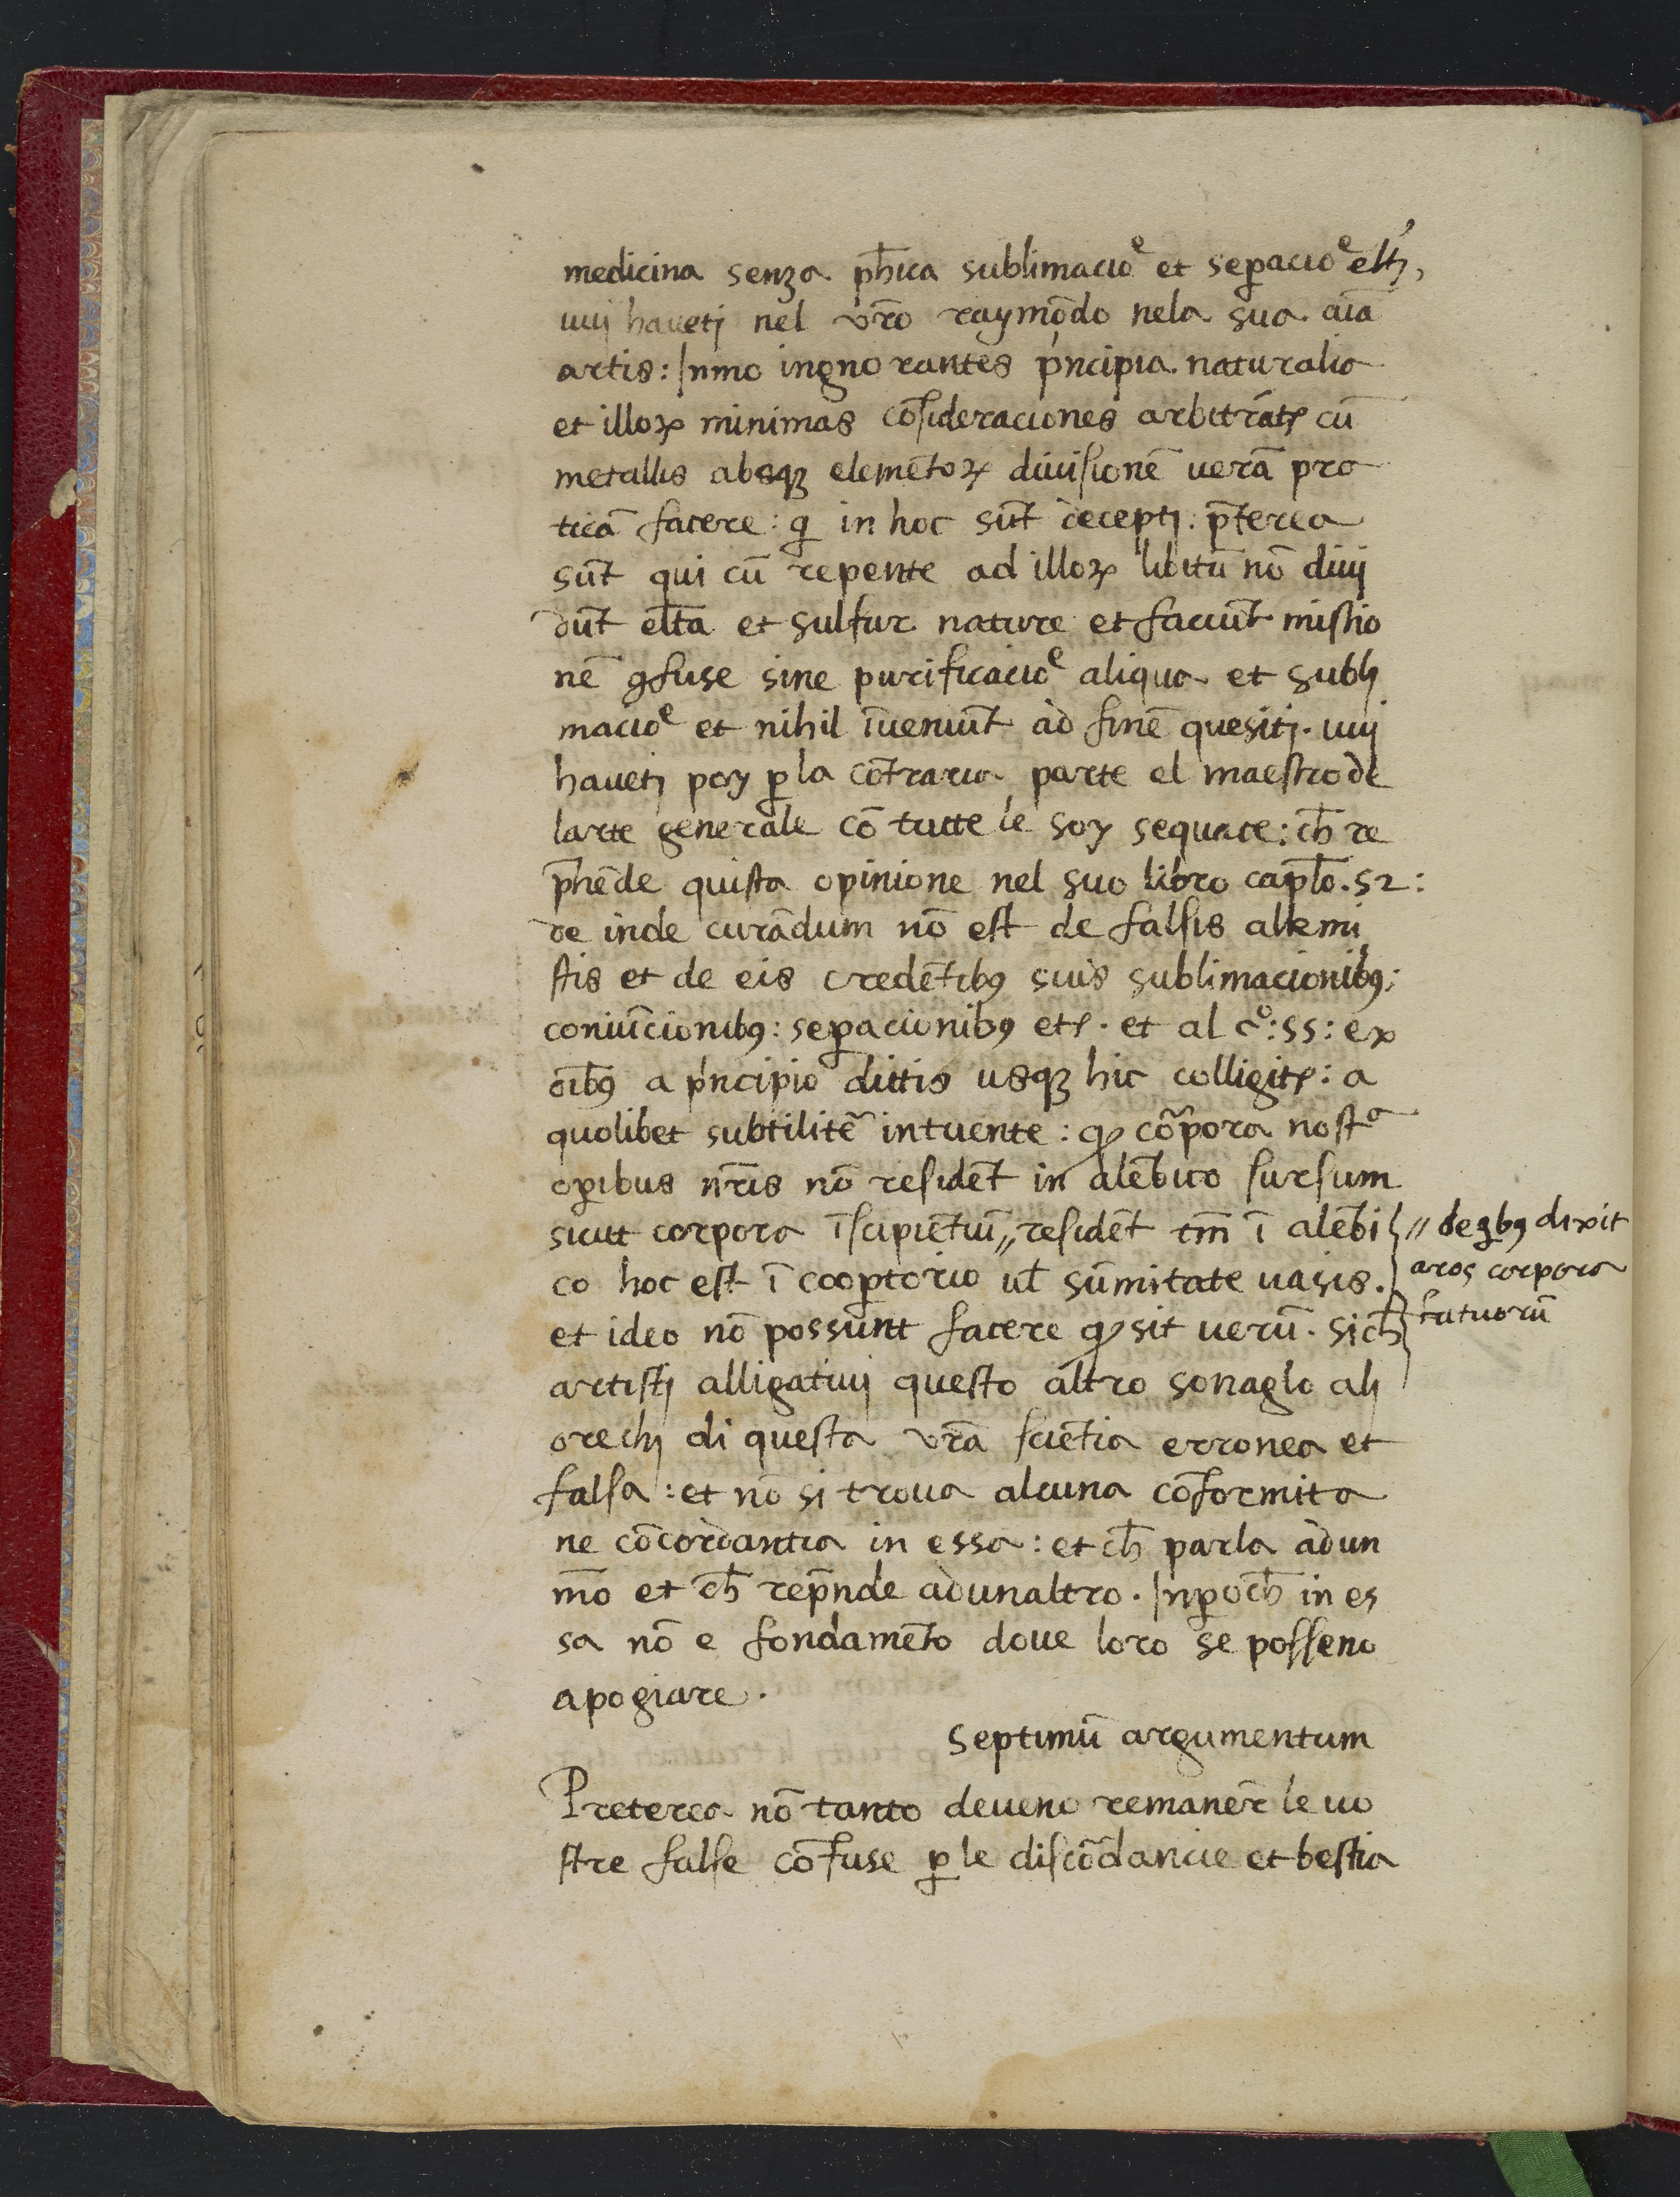 medicina senza ph̄ica sublimacioᵉ et sep̱acioᵉ elt̄j,
uuj havetj nel vr̄o raymōdo nela sua aīa
artis: Inmo ingnorantes p̄ncipia naturalia
et illoꝝ minimas cōſideraciones arbitrātꝭ cū
metallis absqꝫ elemētoꝝ diuiſionē uerā pra
ticā facere: q̄ in hoc sūt deceptj. p̄terea
sūt qui cū repente ad illoꝝ libitū nō diuj
dūt elt̄a et sulfur nature et faciūt miſtio
nē ꝯfuse sine purificacioᵉ aliqua et sublj
macioᵉ et nihil īueniūt ad finē quesitj. uuj
havetj poy ꝑ la cōtraria parte el maeſtro de
larte generale cō tutte le soy sequace: ch̄ re
p̄hēde quiſta opinione nel suo libro capt̄o. 52:
de inde curādum nō eſt de falſis alkemi
ſtis et de eis credētibꝰ suis sublimacionibꝰ:
coniūcionibꝰ: seꝑacionibꝰ etꝭ. et al cº: 55: ex
oībꝰ a p̄ncipio dittis usqꝫ hic colligitꝭ: a
quolibet subtilitē intuente: ꝙ cōꝛpora noſtᵃ
oꝑibus nr̄is nō reſidēt in alēbico ſurſum
sicut corpora īſcipiētuī // reſidēt tm̄ ī alēbi // de qbꝰ dixit
co hoc eſt ī cooꝑtorio ul̄ sūmitate uasis. aros corpora
et ideo nō possunt facere ꝙ sit uerū. sich̄ fatuorū
artiſtj alligatiuj queſto altro sonaglo alj
orechj di queſta vr̄a ſciētia erronea et
falſa: et nō si troua alcuna cōformita
ne cōcordantia in essa: et ch̄ parla ad un
mō et ch̄ rep̄nde ad unaltro. Inꝑoch̄ in es
sa nō e fondamēto doue loro se poſſeno
apogiare.
Septimū argumentum
Preterea nō tanto deueno remaner̄ le uo
ſtre falſe cōfuse ꝑ le diſcōdancie et beſtia